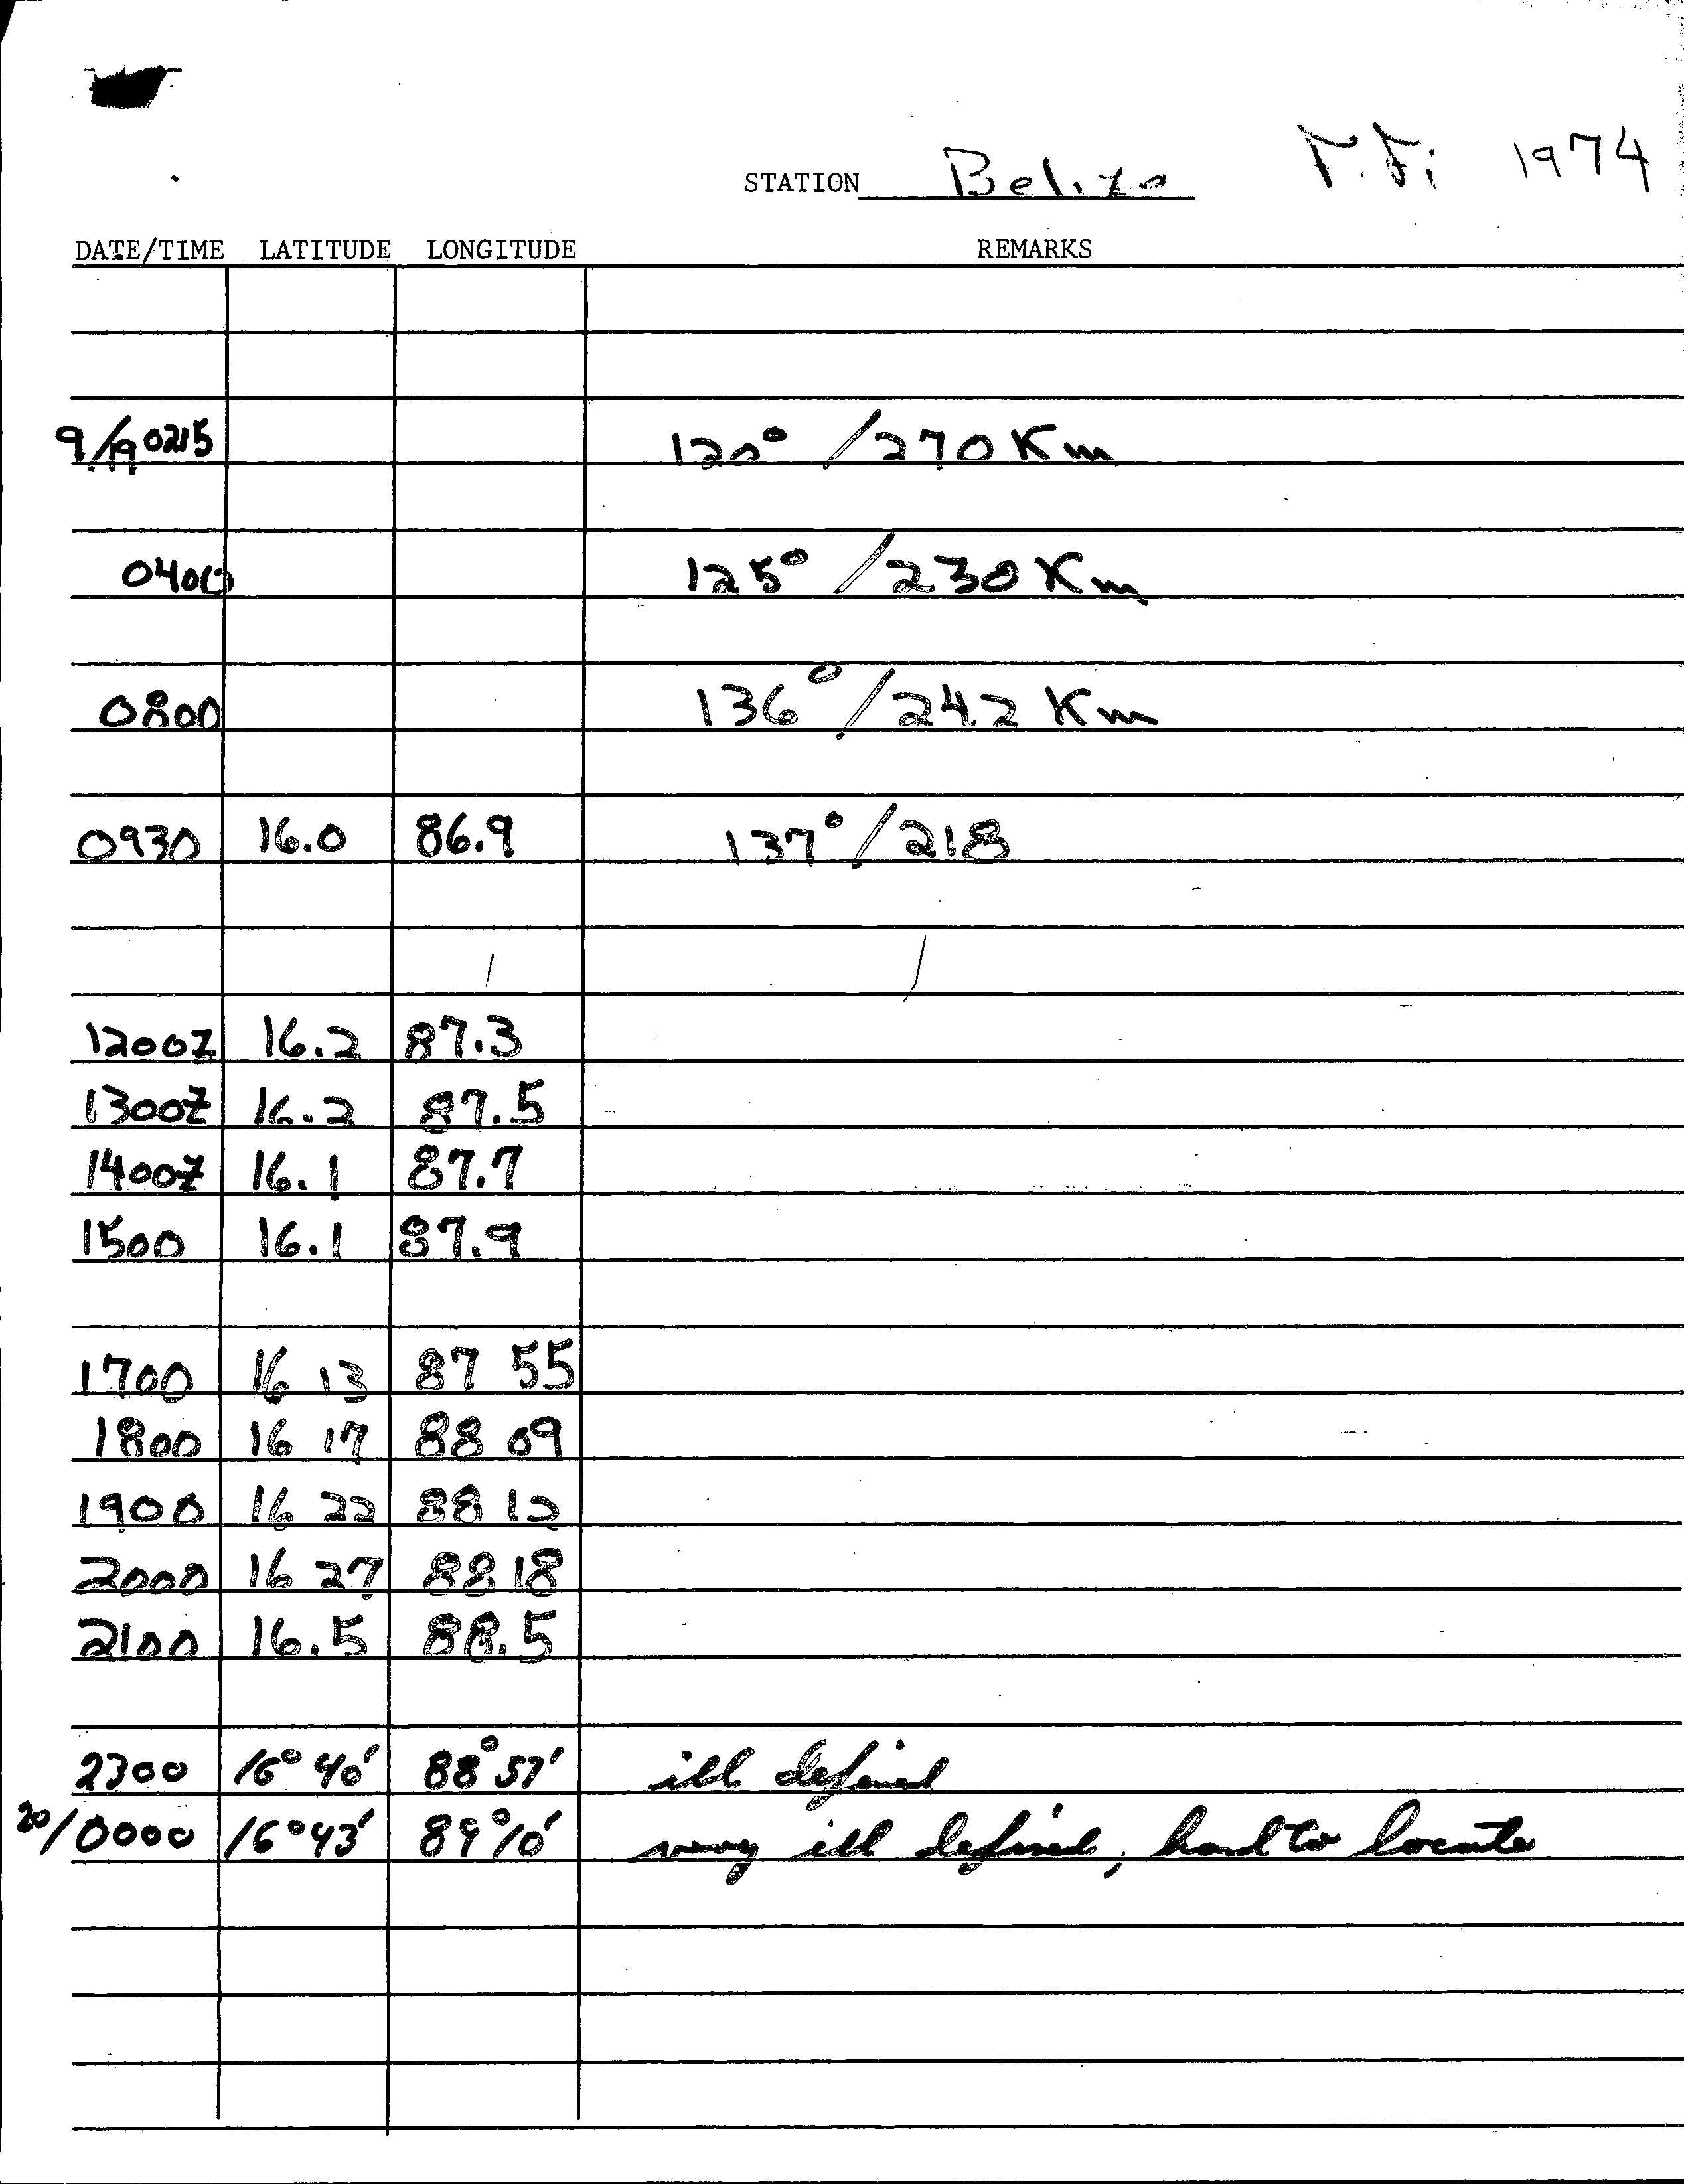 STATION Belize 1974
DATE/TIME LATITUDE LONGITUDE REMARKS
9/19 0215 120° / 270 Km
0400 125° / 230 Km
0800 136° / 242 Km
0930 16.0 86.9 137° / 218
1200Z 16.2 87.3
1300Z 16.2 87.5
1400Z 16.1 87.7
1500 16.1 87.9
1700 16 13 87 55
1800 16 17 88 09
1900 16 22 88 12
2000 16 27 88 18
2100 16.5 88.5
2300 16° 40' 88° 57' ill defined
20/0000 16° 43' 89° 10' very ill defined, hard to locate